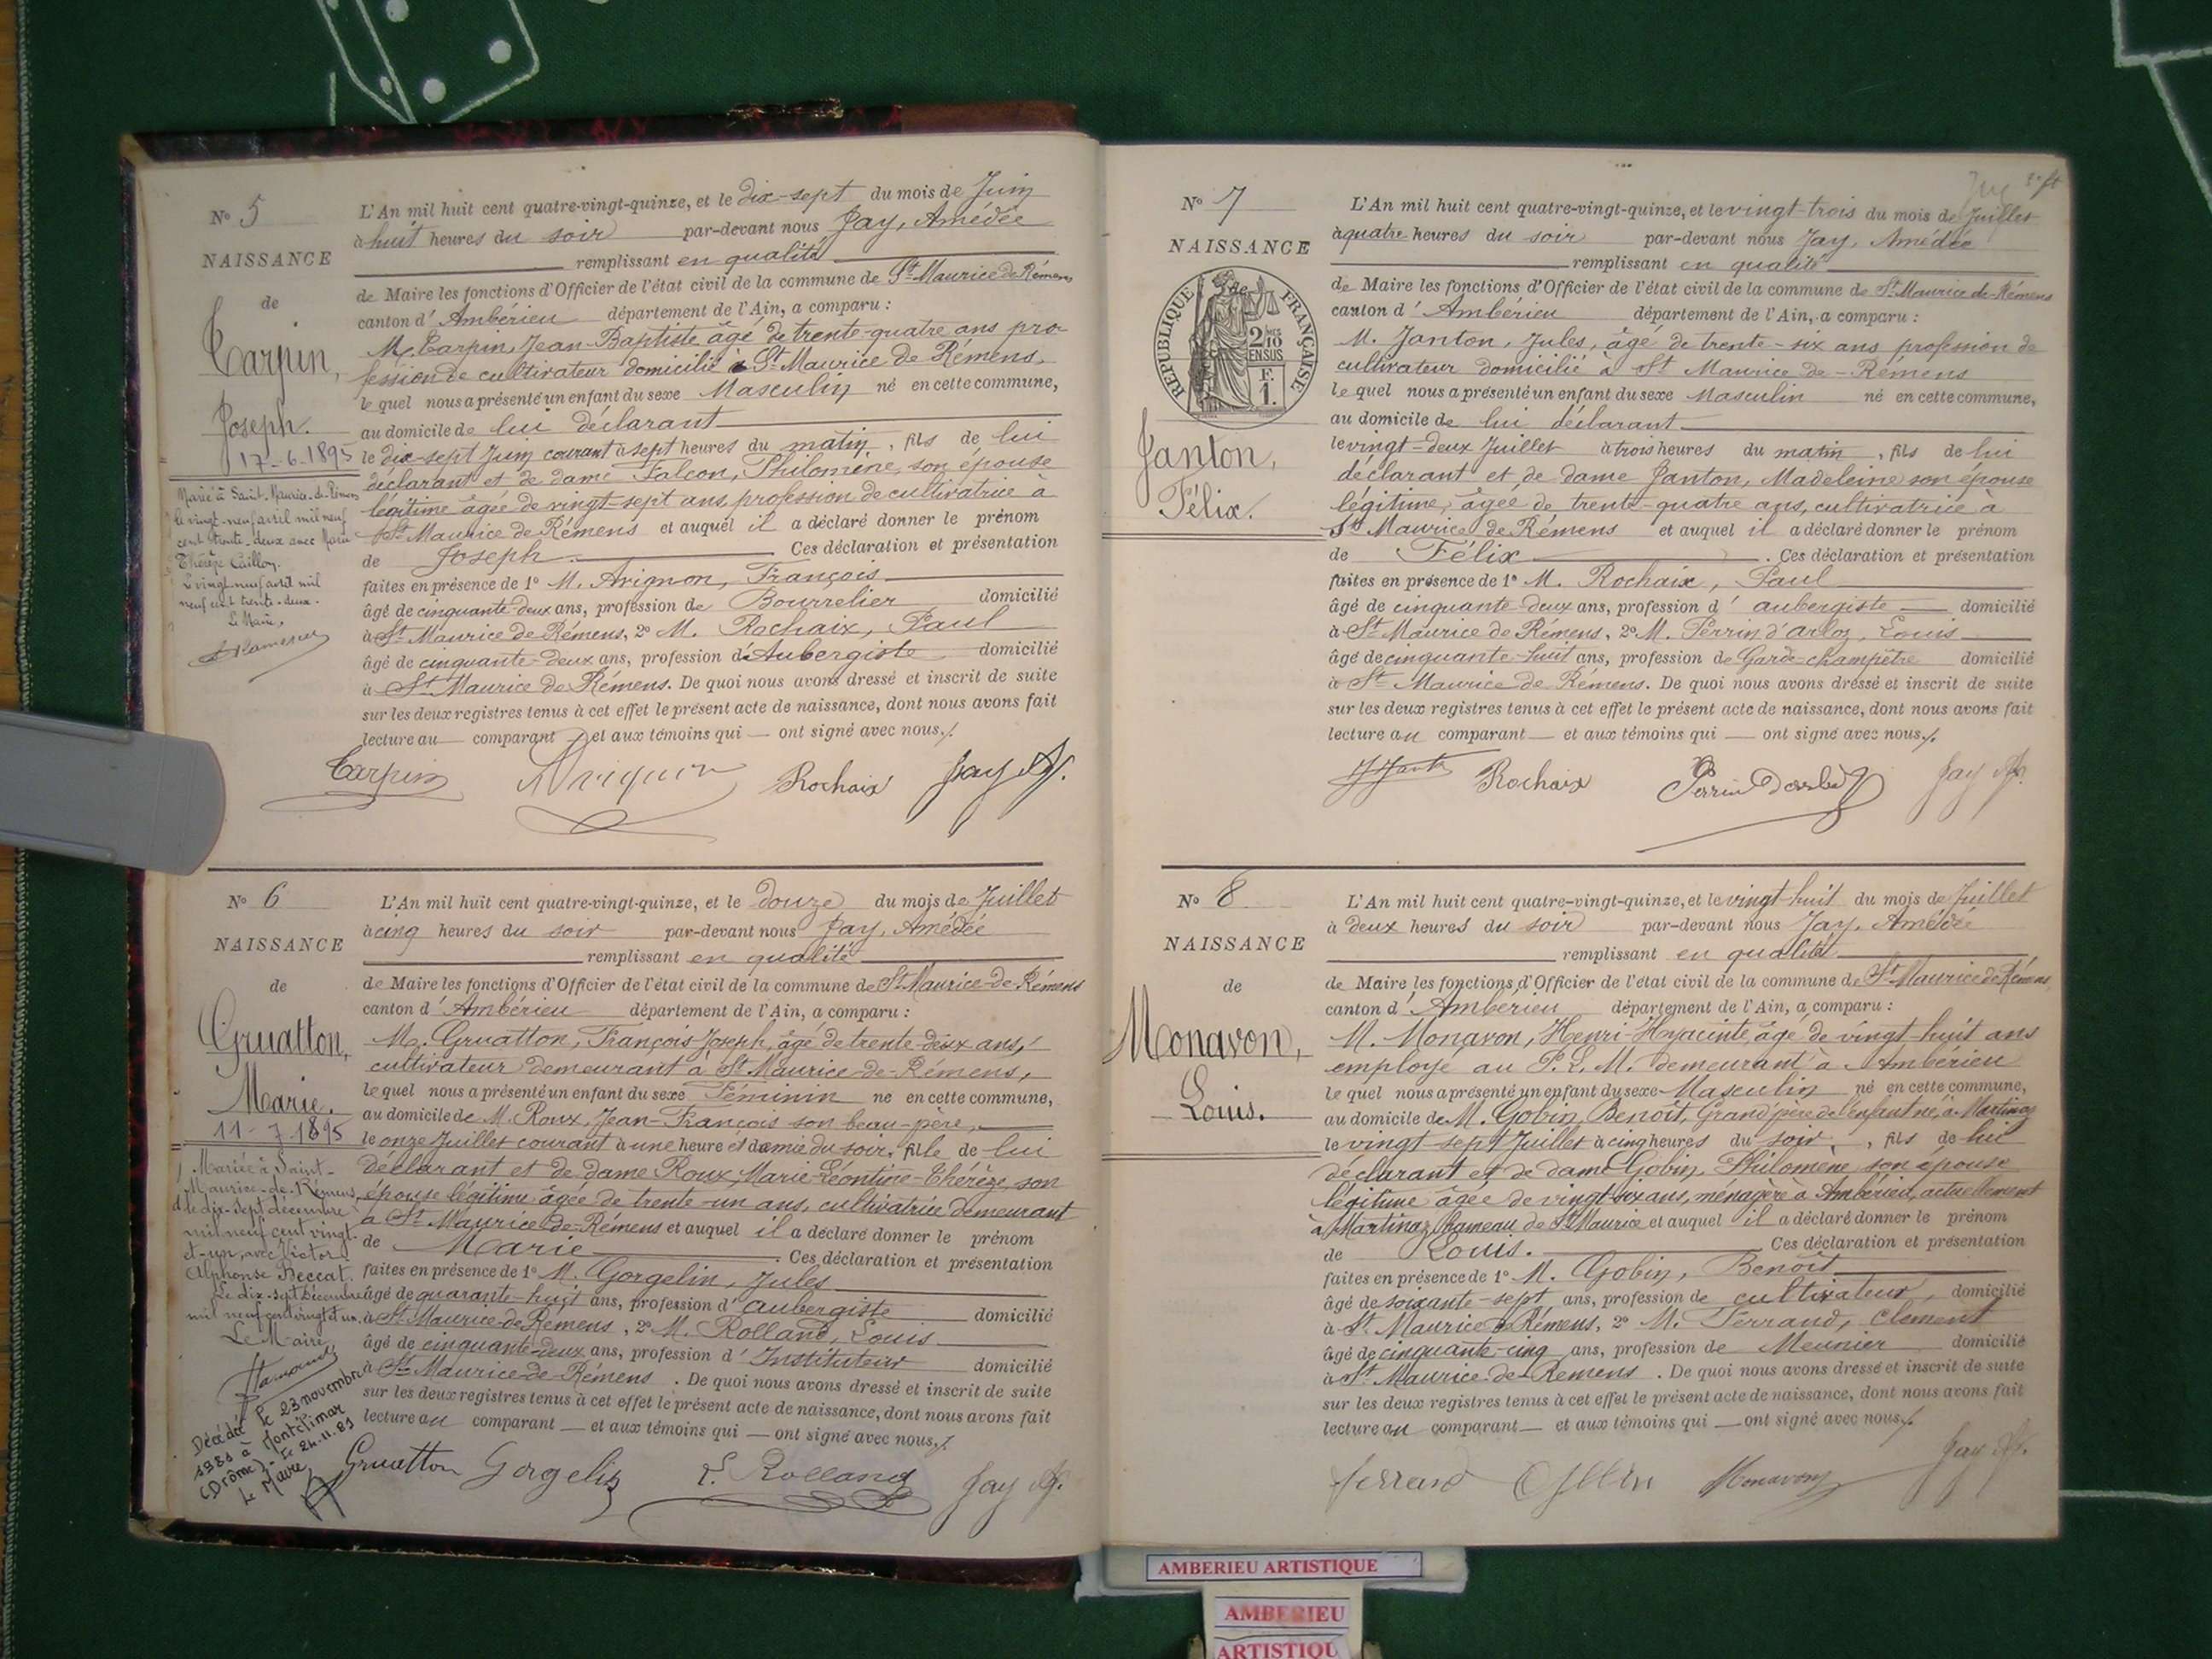 Nº 5
NAISSANCE
de
Carpin,
Joseph.
17-6-1895
Marié à Saint-Maurice-de-Rémens
le vingt-neuf avril mil neuf
cent trente-deux avec Marie
Thérèse Caillon.
Le vingt-neuf avril mil
neuf cent trente-deux.
Le Maire,
L'An mil huit cent quatre-vingt-quinze, et le dix-sept du mois de Juin
à huit heures du soir par-devant nous Jay, Amédée
remplissant en qualité
de Maire les fonctions d'Officier de l'état civil de la commune de St Maurice de Rémens
canton d'Ambérieu département de l'Ain, a comparu :
M. Carpin, Jean-Baptiste âgé de trente-quatre ans pro-
fession de cultivateur domicilié à St Maurice de Rémens.
le quel nous a présenté un enfant du sexe Masculin né en cette commune,
au domicile de lui déclarant
le dix-sept Juin courant à sept heures du matin, fils de lui
déclarant et de dame Falcon, Philomène, son épouse
légitime âgée de vingt-sept ans, profession de cultivatrice à
St Maurice de Rémens et auquel il a déclaré donner le prénom
de Joseph. Ces déclaration et présentation
faites en présence de 1º M. Avignon, François
âgé de cinquante-deux ans, profession de Bourrelier domicilié
à St Maurice de Rémens, 2º M. Rochaix, Paul
âgé de cinquante-deux ans, profession d'Aubergiste domicilié
à St Maurice de Rémens. De quoi nous avons dressé et inscrit de suite
sur les deux registres tenus à cet effet le présent acte de naissance, dont nous avons fait
lecture au comparant et aux témoins qui ont signé avec nous./.
Carpin Avignon Rochaix Jay A.
Nº 6
NAISSANCE
de
Gruatton,
Marie.
11-7 1895
Mariée à Saint-
Maurice-de-Rémens,
le dix-sept décembre
mil neuf cent vingt-
et-un, avec Victor
Alphonse Beccat.
Le dix-sept Décembre
mil neuf cent vingt et un.
Le Maire
Décédée le 23 novembre
1981 à Montélimar
(Drôme) - le 24.11.81
Le Maire
L'An mil huit cent quatre-vingt-quinze, et le douze du mois de Juillet
à cinq heures du soir par-devant nous Jay, Amédée
remplissant en qualité
de Maire les fonctions d'Officier de l'état civil de la commune de St Maurice-de-Rémens
canton d'Ambérieu département de l'Ain, a comparu :
M. Gruatton, François-Joseph, âgé de trente-deux ans,
cultivateur demeurant à St Maurice-de-Rémens,
le quel nous a présenté un enfant du sexe Féminin né en cette commune,
au domicile de M. Roux, Jean-François son beau-père,
le onze Juillet courant à une heure et demie du soir, fille de lui
déclarant et de dame Roux, Marie-Léontine-Thérèze, son
épouse légitime âgée de trente-un ans, cultivatrice demeurant
à St Maurice-de-Rémens et auquel il a déclaré donner le prénom
de Marie. Ces déclaration et présentation
faites en présence de 1º M. Gorgelin, Jules
âgé de quarante-huit ans, profession d'aubergiste domicilié
à St Maurice-de-Rémens, 2º M. Rolland, Louis
âgé de cinquante-deux ans, profession d'Instituteur domicilié
à St Maurice-de-Rémens. De quoi nous avons dressé et inscrit de suite
sur les deux registres tenus à cet effet le présent acte de naissance, dont nous avons fait
lecture au comparant et aux témoins qui ont signé avec nous./.
Gruatton Gorgelin L. Rolland Jay A.
Nº 7
NAISSANCE
REPUBLIQUE FRANÇAISE
2/10 EN SUS
F. 1.
Janton,
Félix.
L'An mil huit cent quatre-vingt-quinze, et le vingt-trois du mois de Juillet
à quatre heures du soir par-devant nous Jay, Amédée
remplissant en qualité
de Maire les fonctions d'Officier de l'état civil de la commune de St Maurice de Rémens
canton d'Ambérieu département de l'Ain, a comparu :
M. Janton, Jules, âgé de trente-six ans profession de
cultivateur domicilié à St Maurice de-Rémens
le quel nous a présenté un enfant du sexe Masculin né en cette commune,
au domicile de lui déclarant
le vingt-deux Juillet à trois heures du matin, fils de lui
déclarant et de dame Janton, Madeleine son épouse
légitime, âgée de trente-quatre ans, cultivatrice à
St Maurice de Rémens et auquel il a déclaré donner le prénom
de Félix. Ces déclaration et présentation
faites en présence de 1º M. Rochaix, Paul
âgé de cinquante-deux ans, profession d'aubergiste domicilié
à St Maurice de Rémens, 2º M. Perrin d'arloz, Louis
âgé de cinquante-huit ans, profession de Garde-champêtre domicilié
à St Maurice de Rémens. De quoi nous avons dressé et inscrit de suite
sur les deux registres tenus à cet effet le présent acte de naissance, dont nous avons fait
lecture au comparant et aux témoins qui ont signé avec nous./.
Rochaix Jay A.
Nº 8
NAISSANCE
de
Monavon,
Louis.
L'An mil huit cent quatre-vingt-quinze, et le vingt-huit du mois de Juillet
à deux heures du soir par-devant nous Jay, Amédée
remplissant en qualité
de Maire les fonctions d'Officier de l'état civil de la commune de St Maurice de Rémens
canton d'Ambérieu département de l'Ain, a comparu :
M. Monavon, Henri-Hyacinte âgé de vingt-huit ans
employé au P.L.M. demeurant à Ambérieu
le quel nous a présenté un enfant du sexe Masculin né en cette commune,
au domicile de M. Gobin, Benoît, Grand père de l'enfant né, à Martinaz
le vingt sept Juillet à cinq heures du soir, fils de lui
déclarant et de dame Gobin, Philomène son épouse
légitime âgée de vingt-six ans, ménagère à Ambérieu, actuellement
à Martinaz hameau de St Maurice et auquel il a déclaré donner le prénom
de Louis. Ces déclaration et présentation
faites en présence de 1º M. Gobin, Benoît
âgé de soixante-sept ans, profession de cultivateur, domicilié
à St Maurice de Rémens, 2º M. Ferrand, Clément
âgé de cinquante-cinq ans, profession de Meunier domicilié
à St Maurice-de-Rémens. De quoi nous avons dressé et inscrit de suite
sur les deux registres tenus à cet effet le présent acte de naissance, dont nous avons fait
lecture au comparant et aux témoins qui ont signé avec nous./.
ferrand Monavon Jay A.
AMBERIEU ARTISTIQUE
AMBERIEU
ARTISTIQU